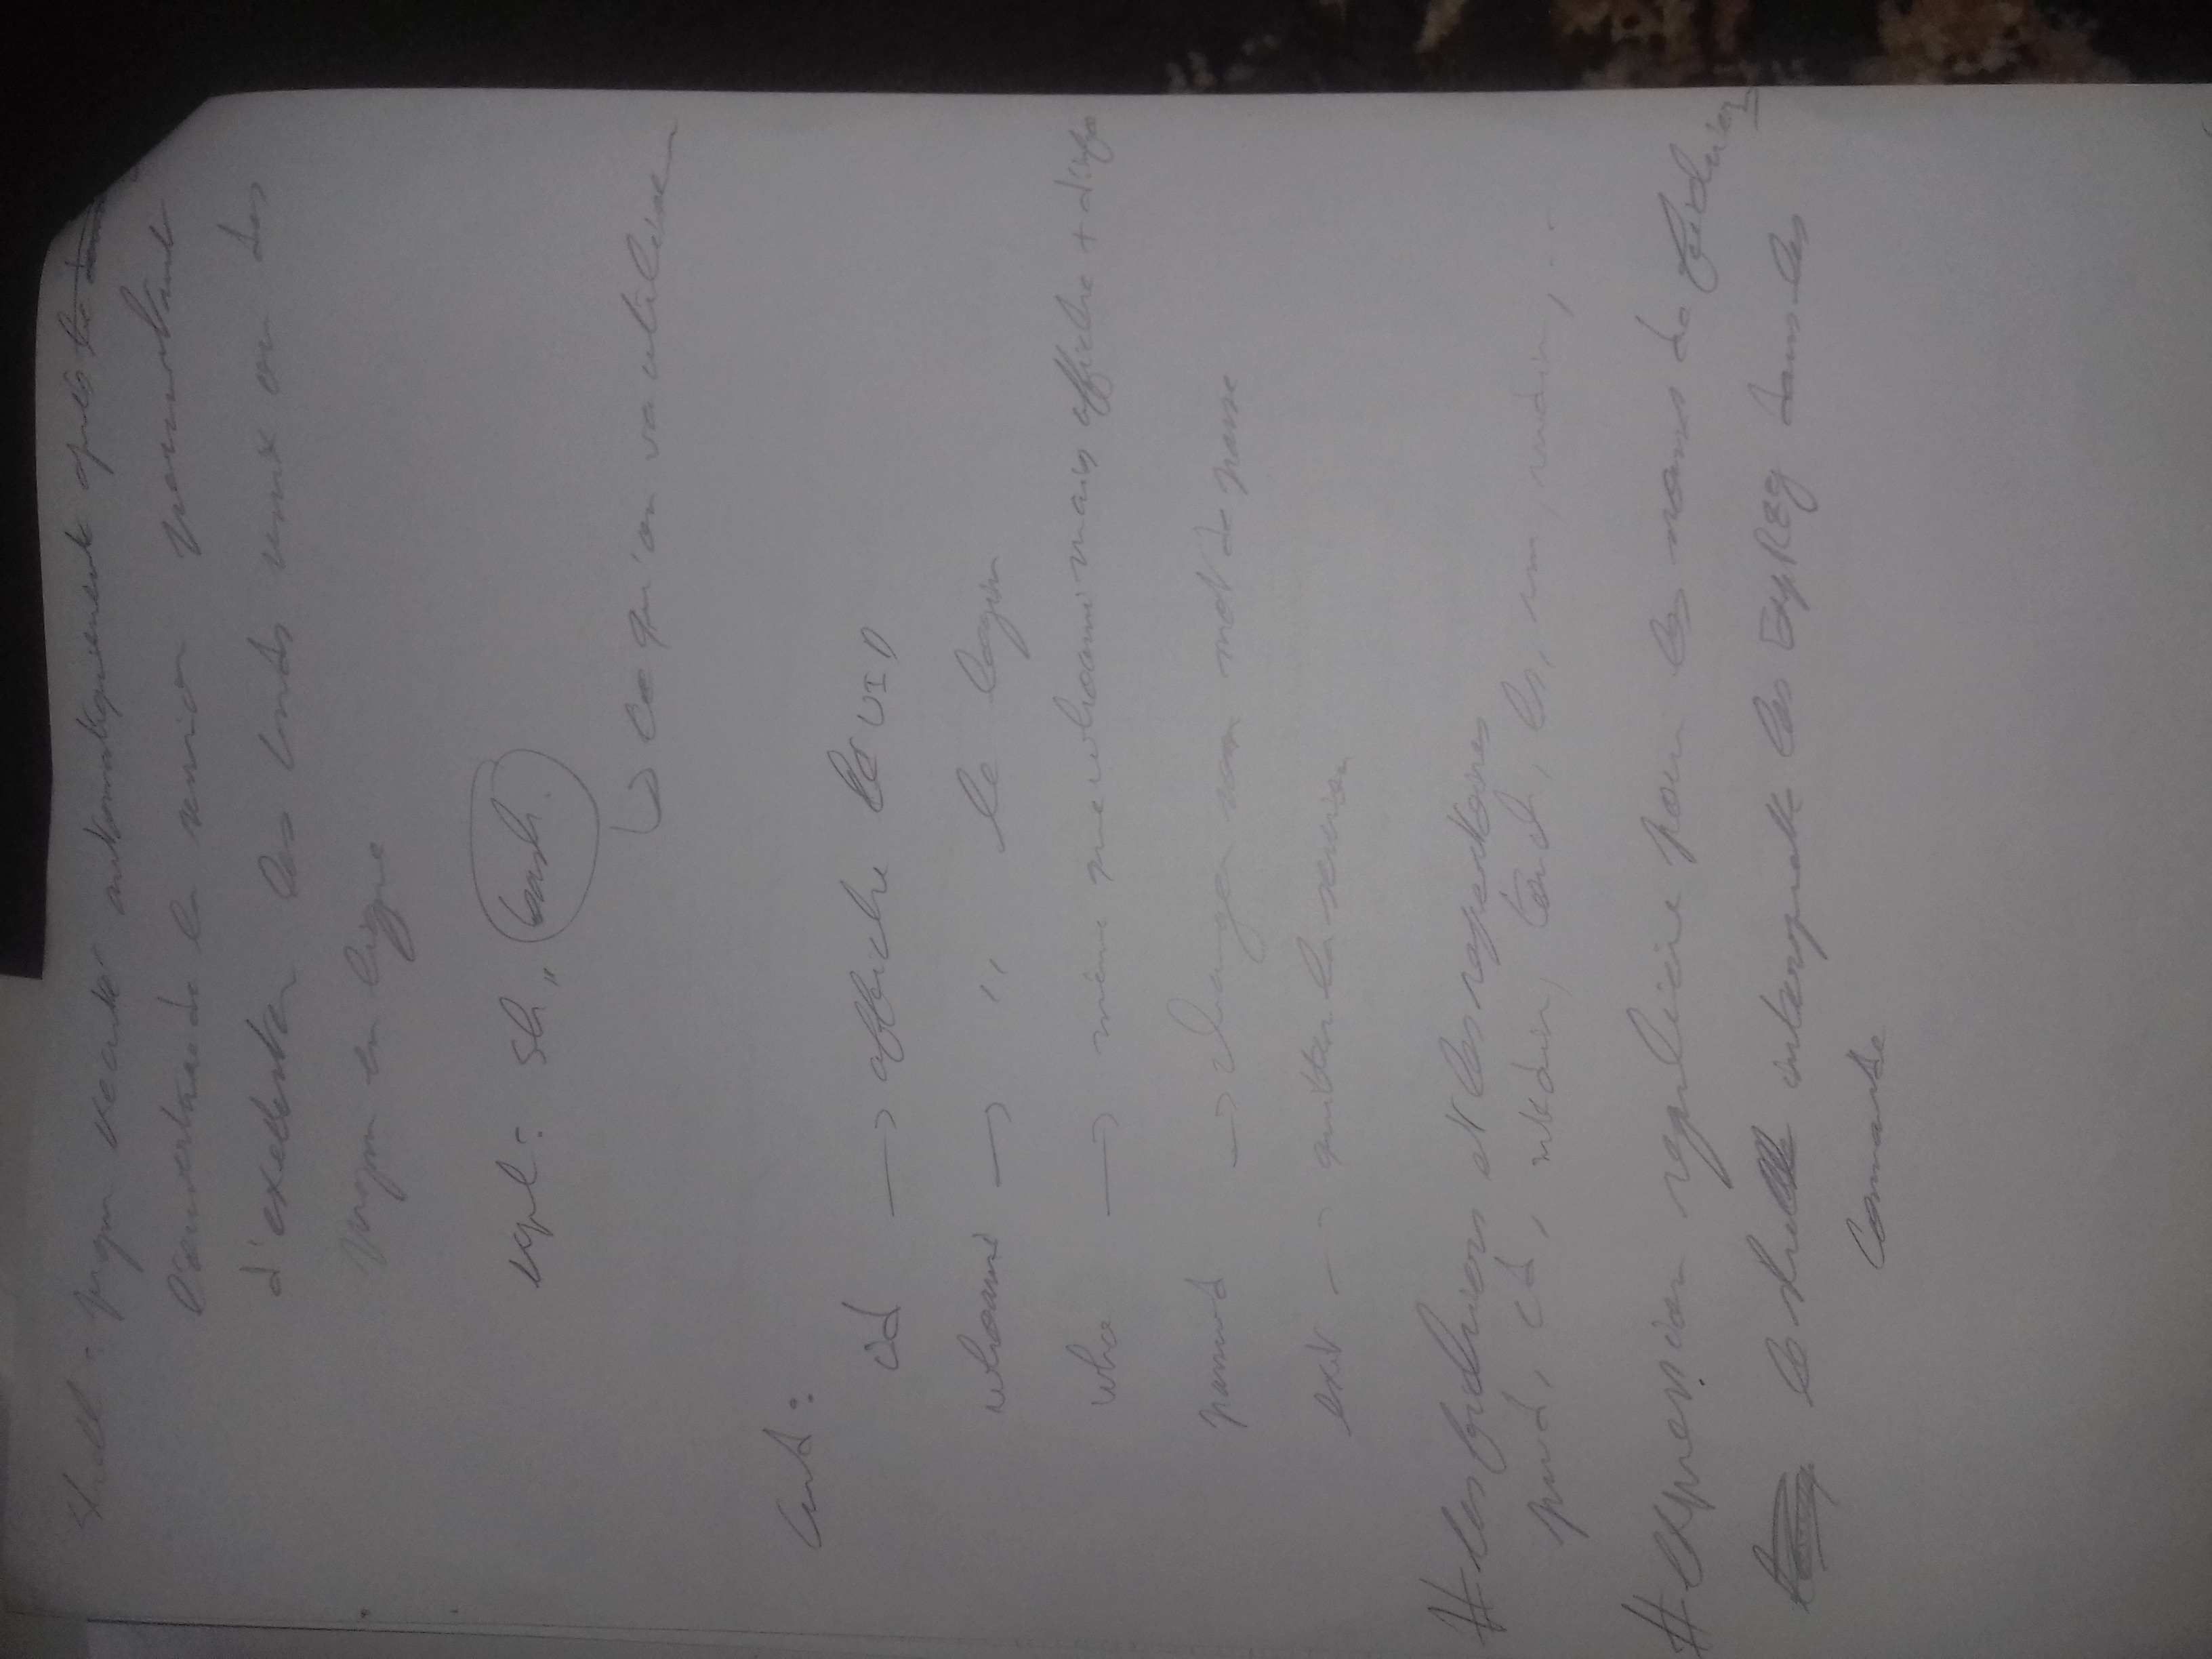 Shell = progm executé automatiquement après
l'ouverture de la session permettant
d'exécuter les cmds unix ou des
progm en ligne
expl : sh ,, bash.
↳ ce qu'on va utiliser
Cmd :
id → affiche le UID
whoami → " le login
who → même que whoami mais affiche + d'info
passwd → changer son mot de passe
exit → quitter la session
# les fichiers et les repertoires
pwd, cd, mkdir, touch, ls, rm, rmdir, ...
# expression regulière pour les noms de fichiers
le shell interprete les ExpREg dans les
Commande